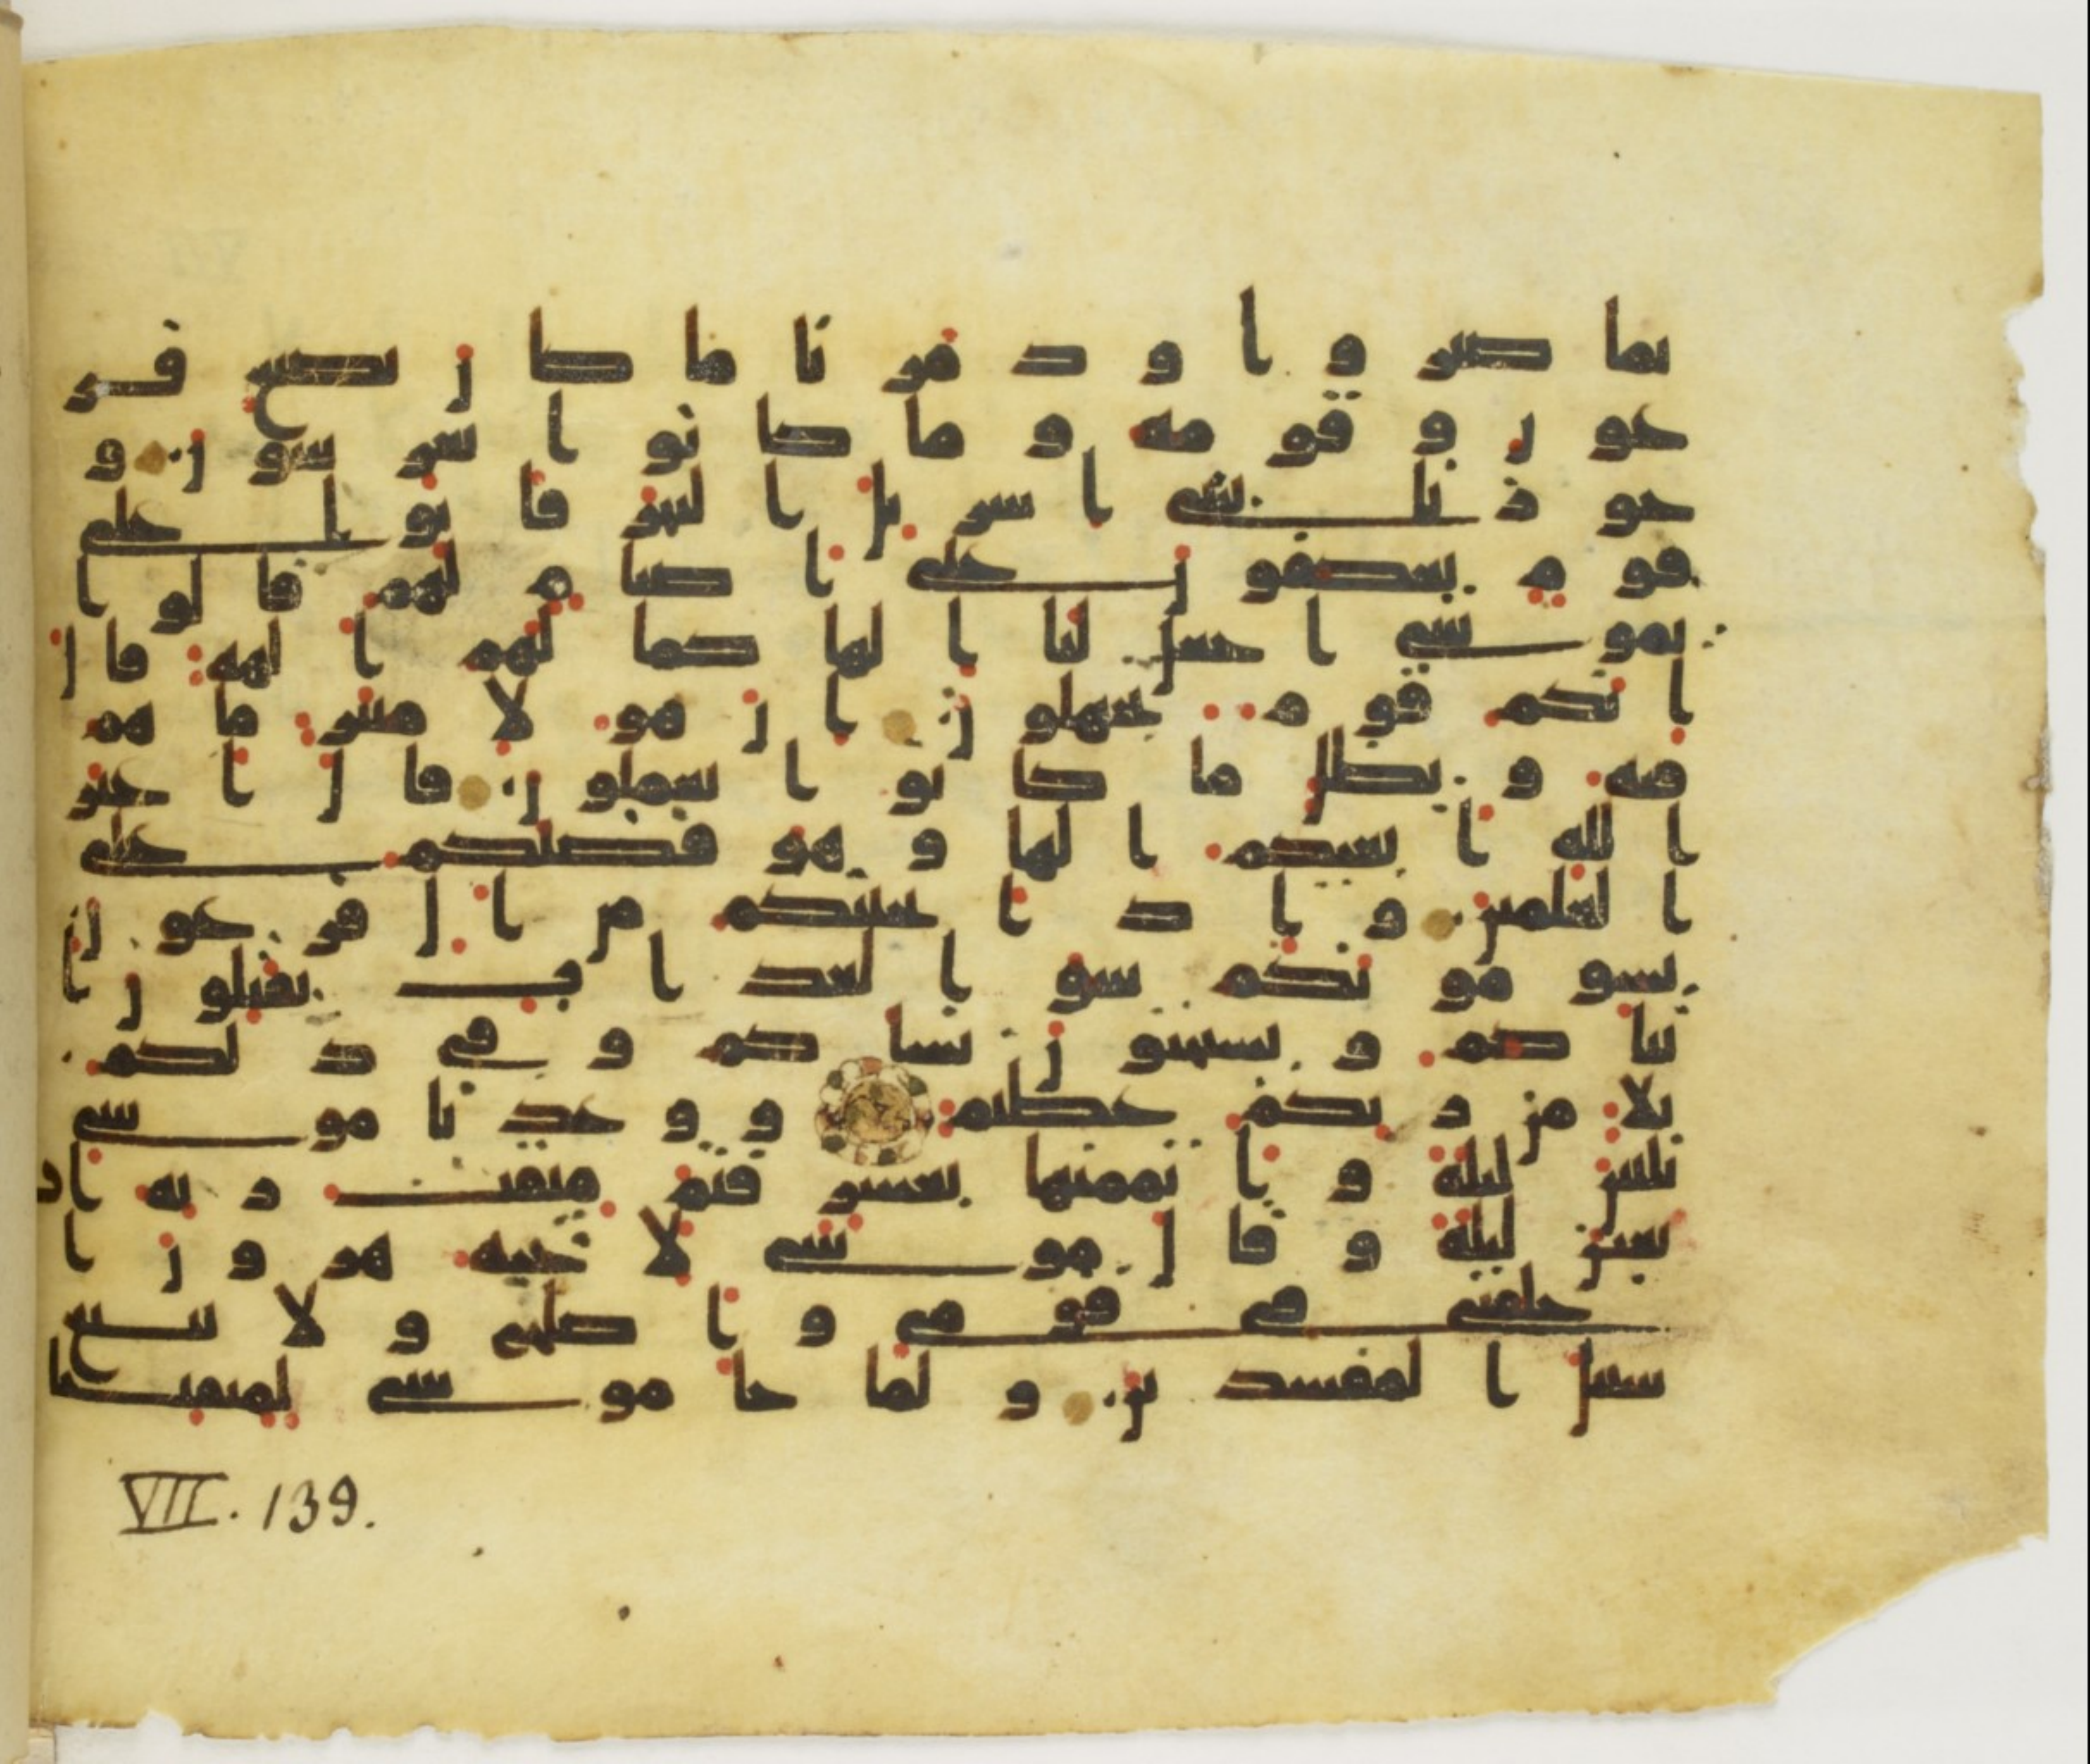 بما صبروا ودمرنا ما كان يصنع فر
عون وقومه وما كانوا يعرشون و
جوزنا ببنى اسريل البحر فاتوا على
قوم يعكفون على اصنام لهم قالوا
يموسى اجعل لنا الها كما لهم الهة قال
انكم قوم تجهلون ان هولا متبر ما هم
فيه وبطل ما كانوا يعملون قال اغير
الله ابغيكم الها وهو فضلكم على
العلمين واذ انجينكم من ال فرعون
يسومونكم سو العذاب يقتلون ا
بنا كم ويستحيون نسا كم وفى ذلكم
بلا من ربكم عظيم ووعدنا موسى
ثلثين ليلة واتممنها بعشر فتم ميقت ربه ار
بعين ليلة وقال موسى لاخيه هرون ا
خلفنى فى قومى واصلح ولا تتبع
سبيل المفسدين ولما جا موسى لميقتنا
VII. 139.